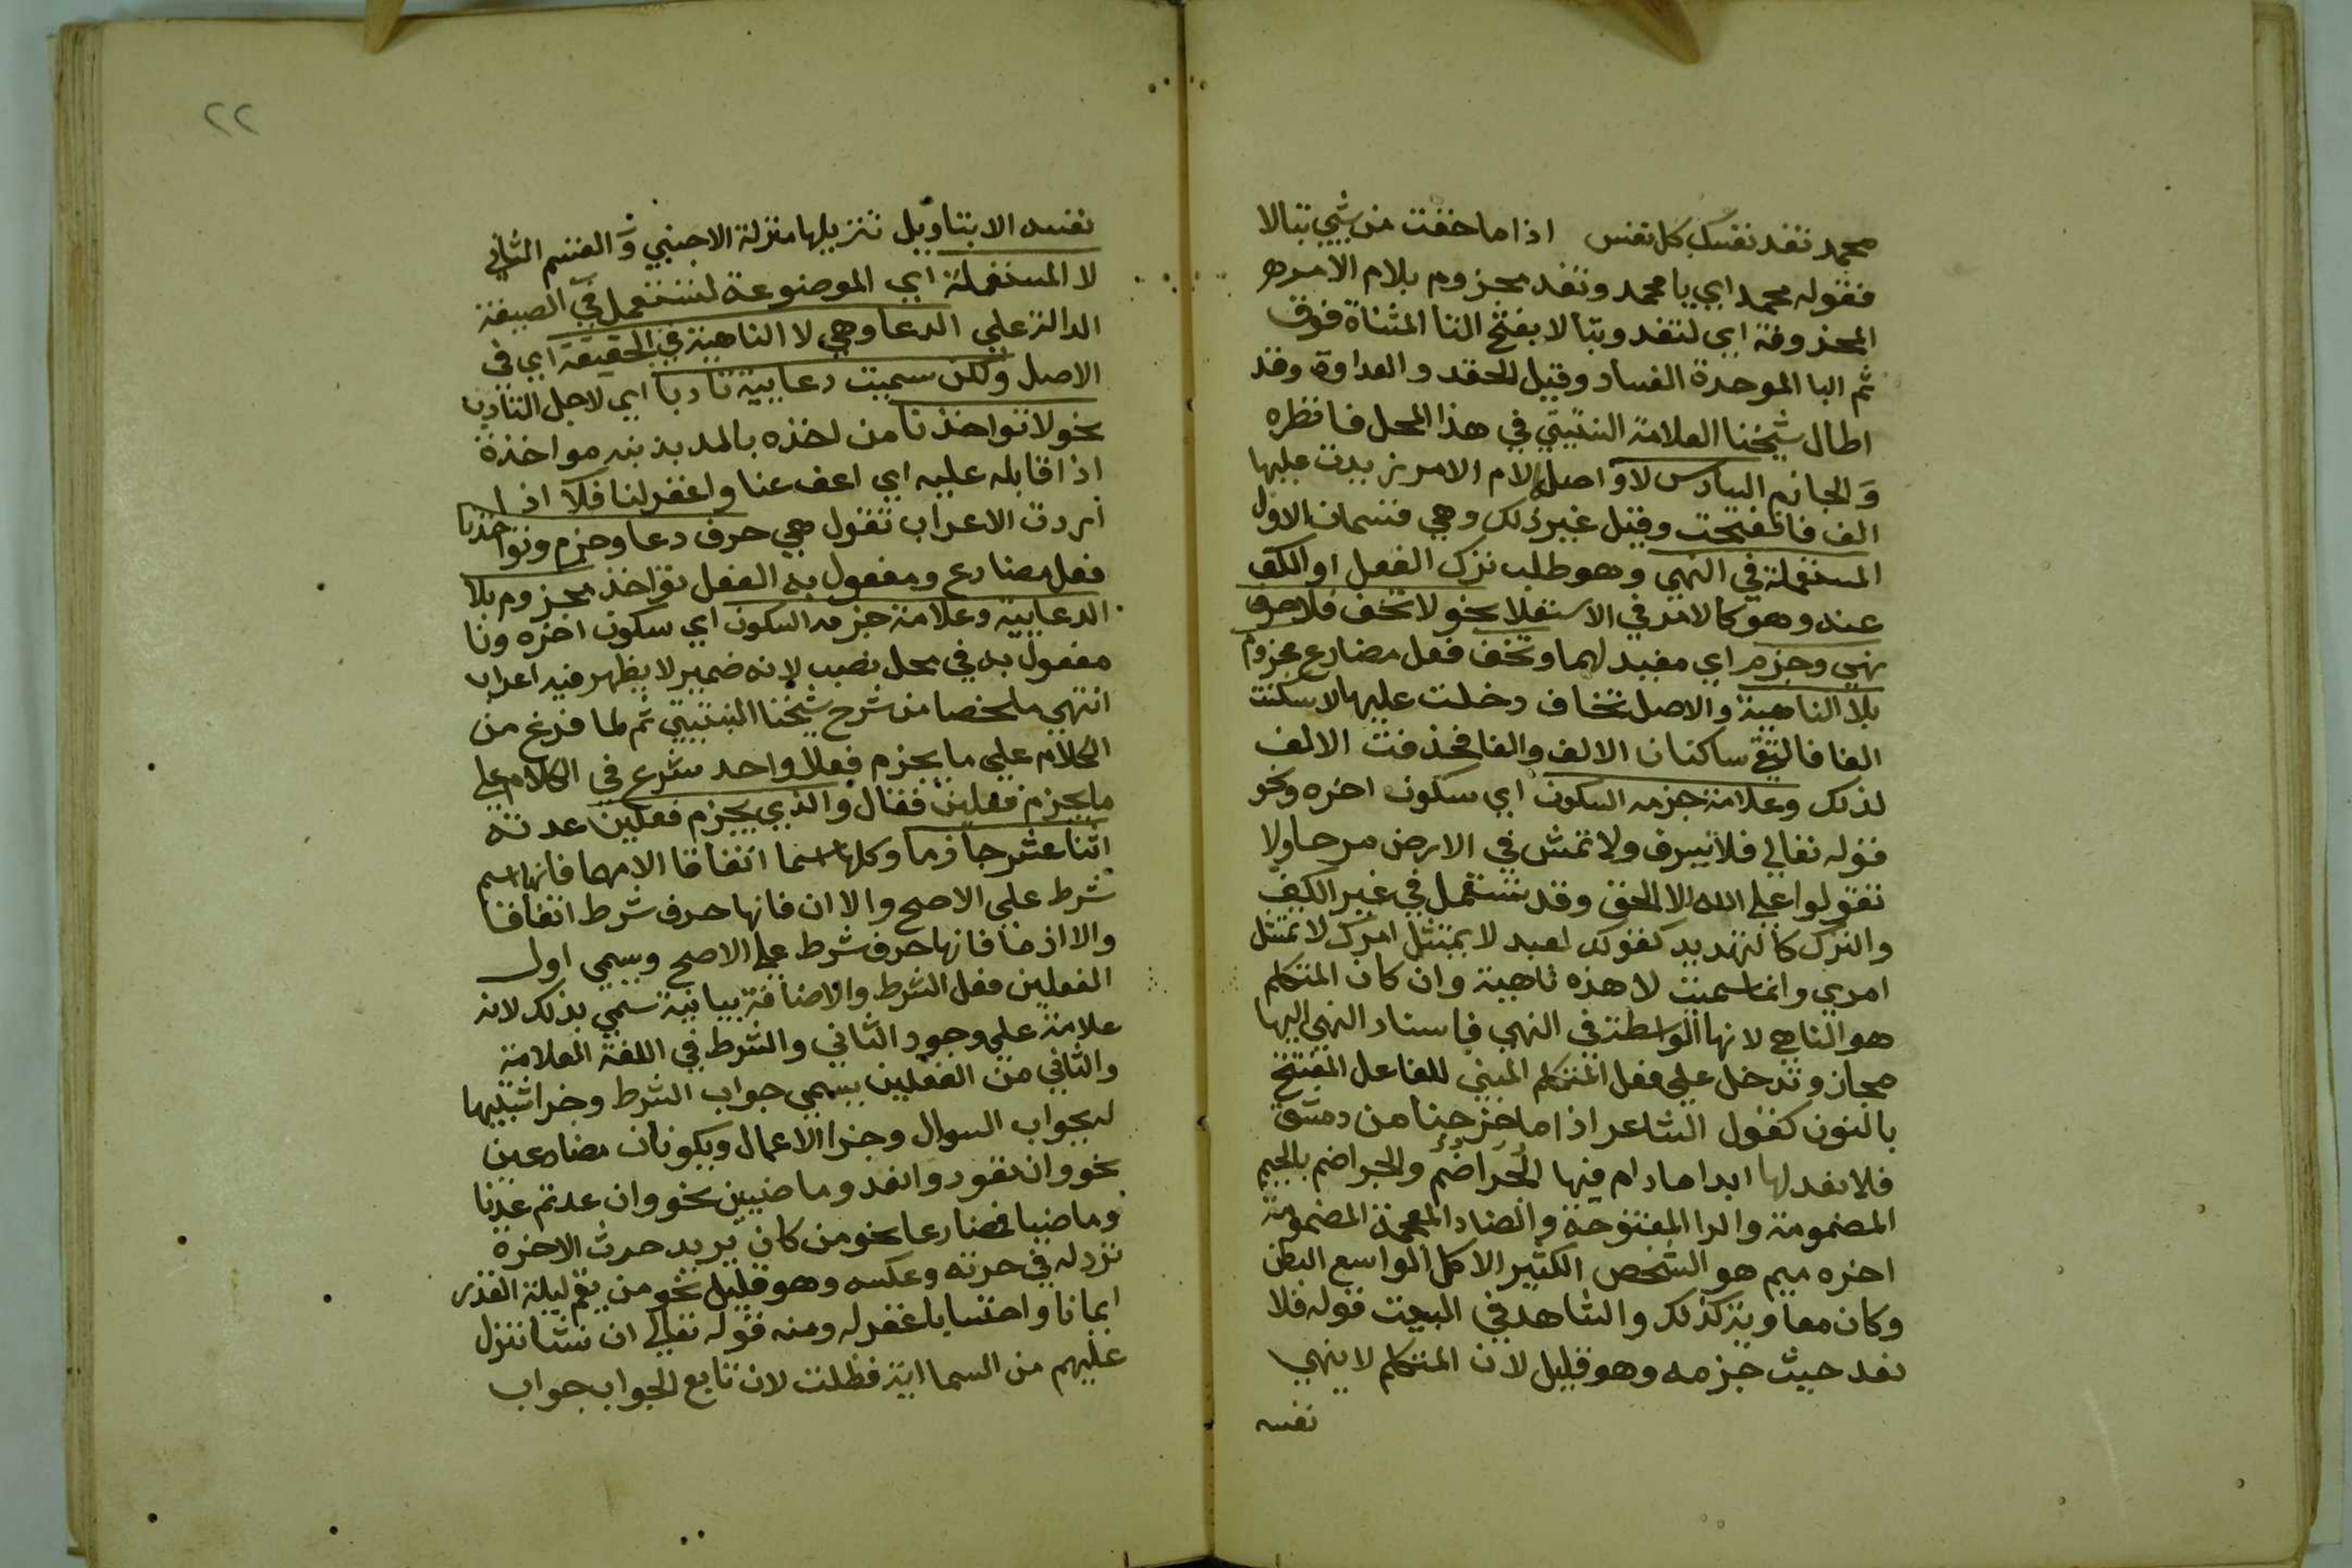 محمد تفد نفسك كل نفس اذا ما خفت من شي تبالا
فقوله محمد اي يا محمد وتفد مجزوم بلام الامر
المحذوفة اي لتفد وتبالا بفتح التا المثناة فوق
ثم البا الموحدة الفساد وقيل الحقد والعداوة وقد
اطال شيخنا العلامة النبتيتي في هذا المحل فانظره
والجازم السادس لا واصلها لام الامر زيدت عليها
الف فانفتحت وقيل غير ذلك وهي قسمان الاول
المستعملة في النهي وهو طلب ترك الفعل او الكف
عنه وهو كالامر في الاستعلا نحو لا تخف فلا حرف
نهي وجزم اي مفيد لهما وتخف فعل مضارع مجزوم
بلا الناهية والاصل تخاف دخلت عليها لا سكنت
الفا فالتقي ساكنان الالف والفا فحذفت الالف
لذلك وعلامة جزمه السكون اي سكون اخره ونحو
قوله تعالي فلا يسرف ولا تمش في الارض مرحا ولا
تقولوا علي الله الا الحق وقد تستعمل في غير الكف
والترك كالتهديد كقولك لعبد لا يمتثل امرك لا تمتثل
امري وانما سميت لا هذه ناهية وان كان المتكلم
هو الناهي لانها الواسطة في النهي فاسناد النهي اليها
مجاز وتدخل علي فعل المتكلم المبني للفاعل المفتتح
بالنون كقول الشاعر اذا ما خرجنا من دمشق
فلا نعد لها ابدا ما دام فيها الجُرَاضُمُ والجراضم بالجيم
المضمومة والرا المفتوحة والضاد المعجمة المضمومة
اخره ميم هو الشخص الكثير الاكل الواسع البطن
وكان معاوية كذلك والشاهد في البيت قوله فلا
نعد حيث جزمه وهو قليل لان المتكلم لا ينهي
نفسه
٢٢
نفسه الا بتاويل تنزيلها منزلة الاجنبي والقسم الثاني
لا المستعملة اي الموضوعة لتستعمل في الصيغة
الدالة علي الدعا وهي لا الناهية في الحقيقة اي في
الاصل ولكن سميت دعايية تادبا اي لاجل التادب
نحو لا تواخذنا من اخذه بالمد بذنبه مواخذة
اذا قابله عليه اي اعف عنا واغفر لنا فلا اذا
اردت الاعراب تقول هي حرف دعا وجزم وتواخذنا
فعل مضارع ومفعول به الفعل تواخذ مجزوم بلا
الدعايية وعلامة جزمه السكون اي سكون اخره ونا
مفعول به في محل نصب لانه ضمير لا يظهر فيه اعراب
انتهي ملخصا من شرح شيخنا النبتيتي ثم لما فرغ من
الكلام علي ما يجزم فعلا واحد شرع في الكلام علي
ما يجزم فعلين فقال والذي يجزم فعلين عدته
اثنا عشر جازما وكلها اسما اتفاقا الا مهما فانها اسم
شرط علي الاصح والا ان فانها حرف شرط اتفاقا
والا اذ ما فانها حرف شرط علي الاصح ويسمي اول
الفعلين فعل الشرط والاضافة بيانية سمي بذلك لانه
علامة علي وجود الثاني والشرط في اللغة العلامة
والثاني من الفعلين يسمي جواب الشرط وجزا تشبيها
له بجواب السوال وجزا الاعمال ويكونان مضارعين
نحو وان تعودوا نعد وماضيين نحو وان عدتم عدنا
وماضيا فمضارعا نحو من كان يريد حرث الاخرة
نزد له في حرثه وعكسه وهو قليل نحو من يقم ليلة القدر
ايمانا واحتسابا غفر له ومنه قوله تعالي ان نشا ننزل
عليهم من السما اية فظلت لان تابع الجواب جواب